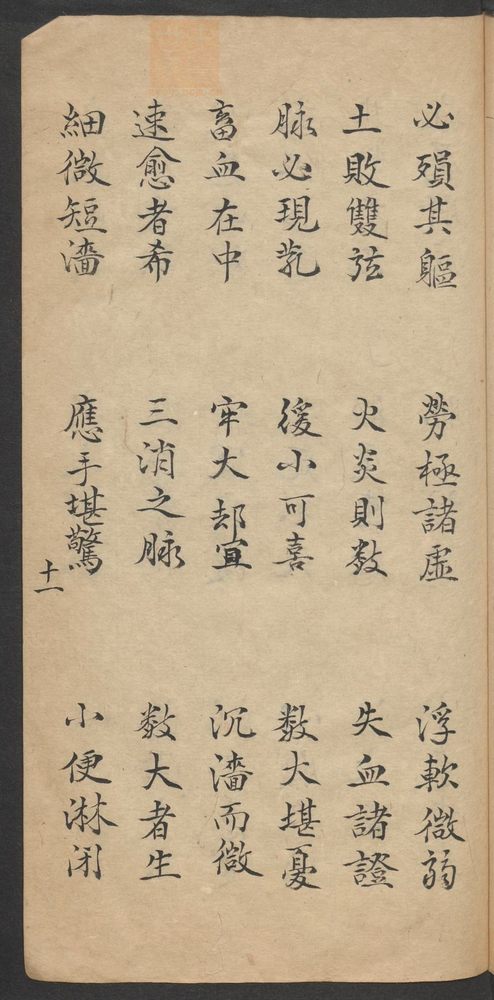 必殞其軀 勞極諸虛 浮軟微弱
土敗雙弦 火炎則数 失血諸證
脉必現芤 緩小可喜 数大堪憂
畜血在中 牢大却宜 沉濇而微
速愈者希 三消之脉 数大者生
細微短濇 應手堪驚 小便淋闭
十一